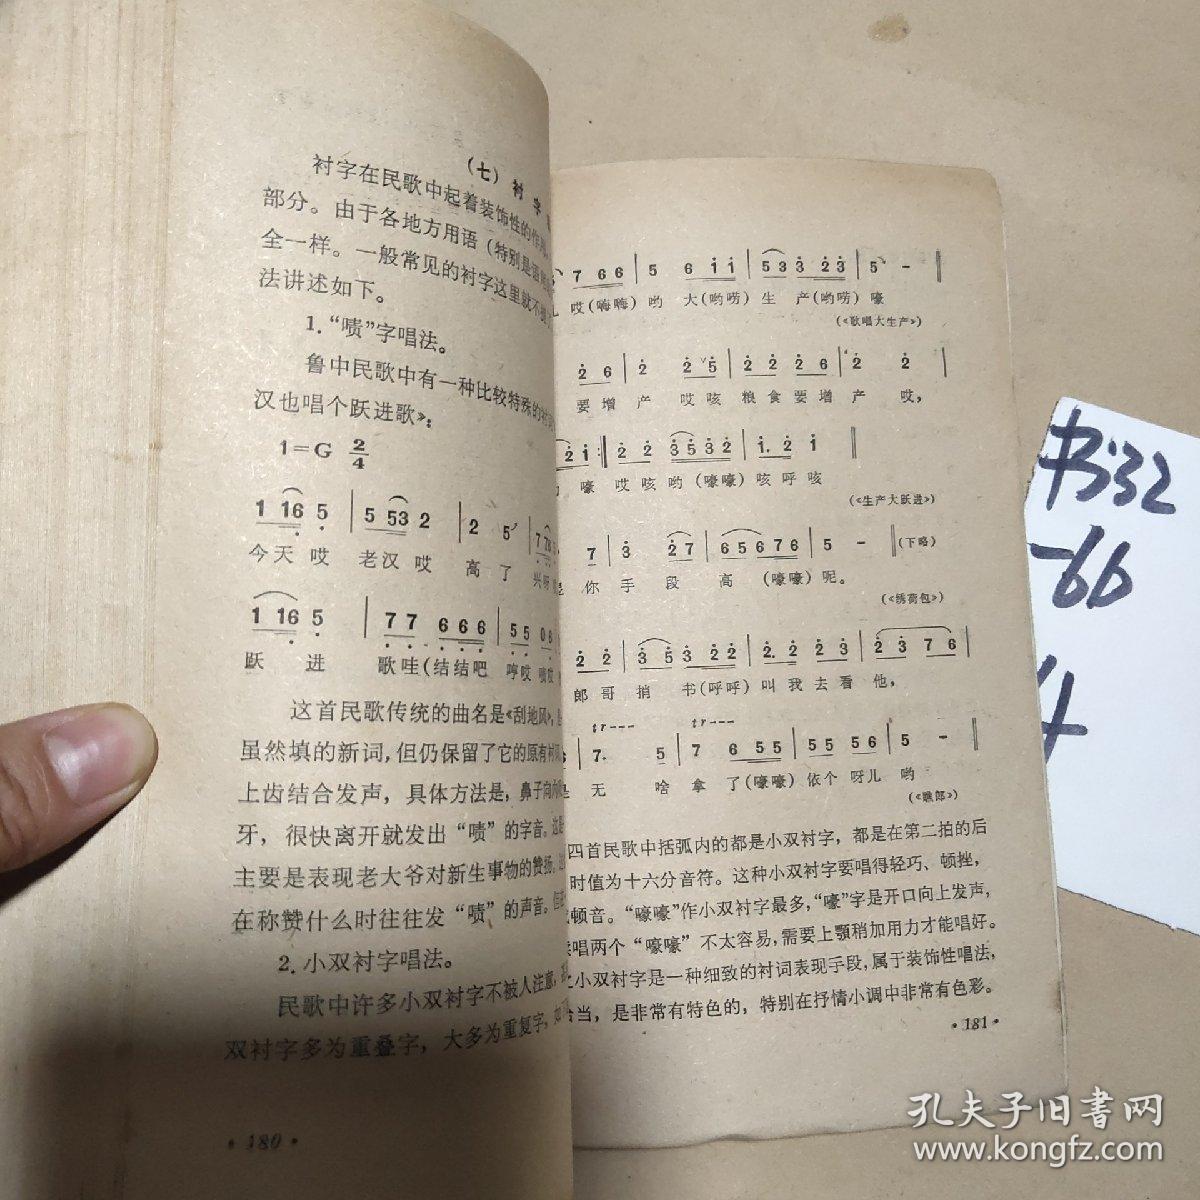 （七）衬字
衬字在民歌中起着装饰性的作
部分。由于各地方用语（特别是
全一样。一般常见的衬字这里就不
法讲述如下。
1.“啧”字唱法。
鲁中民歌中有一种比较特殊的
汉也唱个跃进歌》：
1=G 2/4
1 16 5 | 5 53 2 | 2 5 |
今天 哎 老汉 哎 高 了 兴呀
1 16 5 | 7 7 6 6 6 | 5 5 0 6
跃 进 歌哇（结结吧 哼哎 啧哎
这首民歌传统的曲名是《刮地风》，
虽然填的新词，但仍保留了它的原有衬
上齿结合发声，具体方法是，鼻子向内
牙，很快离开就发出“啧”的字音。这
主要是表现老大爷对新生事物的赞扬。
在称赞什么时往往发“啧”的声音。但
2.小双衬字唱法。
民歌中许多小双衬字不被人注意，
双衬字多为重叠字，大多为重复字，如
·180·
7 6 6 | 5 6 i i | 5 3 3 2 3 | 5 - ‖
哎（嗨嗨）哟 大（哟唠）生 产（哟唠）嚎
（《歌唱大生产》）
2 6 | 2 2 5 | 2 2 2 6 | 2 2
要增 产 哎咳 粮食要增 产 哎，
2 i :| 2 2 3 5 3 2 | i. 2 i ‖
嚎 哎咳哟（嚎嚎）咳呼咳
（《生产大跃进》）
7 | 3 2 7 | 6 5 6 7 6 | 5 - ‖（下略）
你手 段 高 （嚎嚎）呢。
（《绣荷包》）
2 2 | 3 5 3 2 2 | 2. 2 2 3 | 2 3 7 6 |
郎哥 捎 书（呼呼）叫 我 去 看 他，
tr--- tr---
7. 5 | 7 6 5 5 | 5 5 5 6 | 5 - ‖
无 啥 拿 了（嚎嚎）依个 呀儿 哟
（《瞧郎》）
四首民歌中括弧内的都是小双衬字，都是在第二拍的后
时值为十六分音符。这种小双衬字要唱得轻巧、顿挫，
顿音。“嚎嚎”作小双衬字最多，“嚎”字是开口向上发声，
唱两个“嚎嚎”不太容易，需要上颚稍加用力才能唱好。
小双衬字是一种细致的衬词表现手段，属于装饰性唱法，
恰当，是非常有特色的，特别在抒情小调中非常有色彩。
·181·
书32
-66
4
孔夫子旧书网
www.kongfz.com